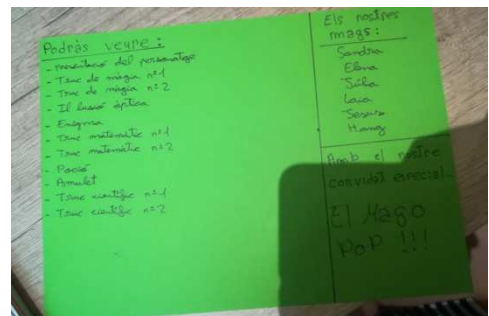 Podràs veure:
- Presentació del personatge
- Truc de màgia nº1
- Truc de màgia nº2
- Il·lusió òptica
- Enigma
- Truc matemàtic nº1
- Truc matemàtic nº2
- Poció
- Amulet
- Truc científic nº1
- Truc científic nº2
Els nostres
mags:
Sandra
Elena
Júlia
Laia
Amb el nostre
convidat especial...
El Mago
PoP !!!